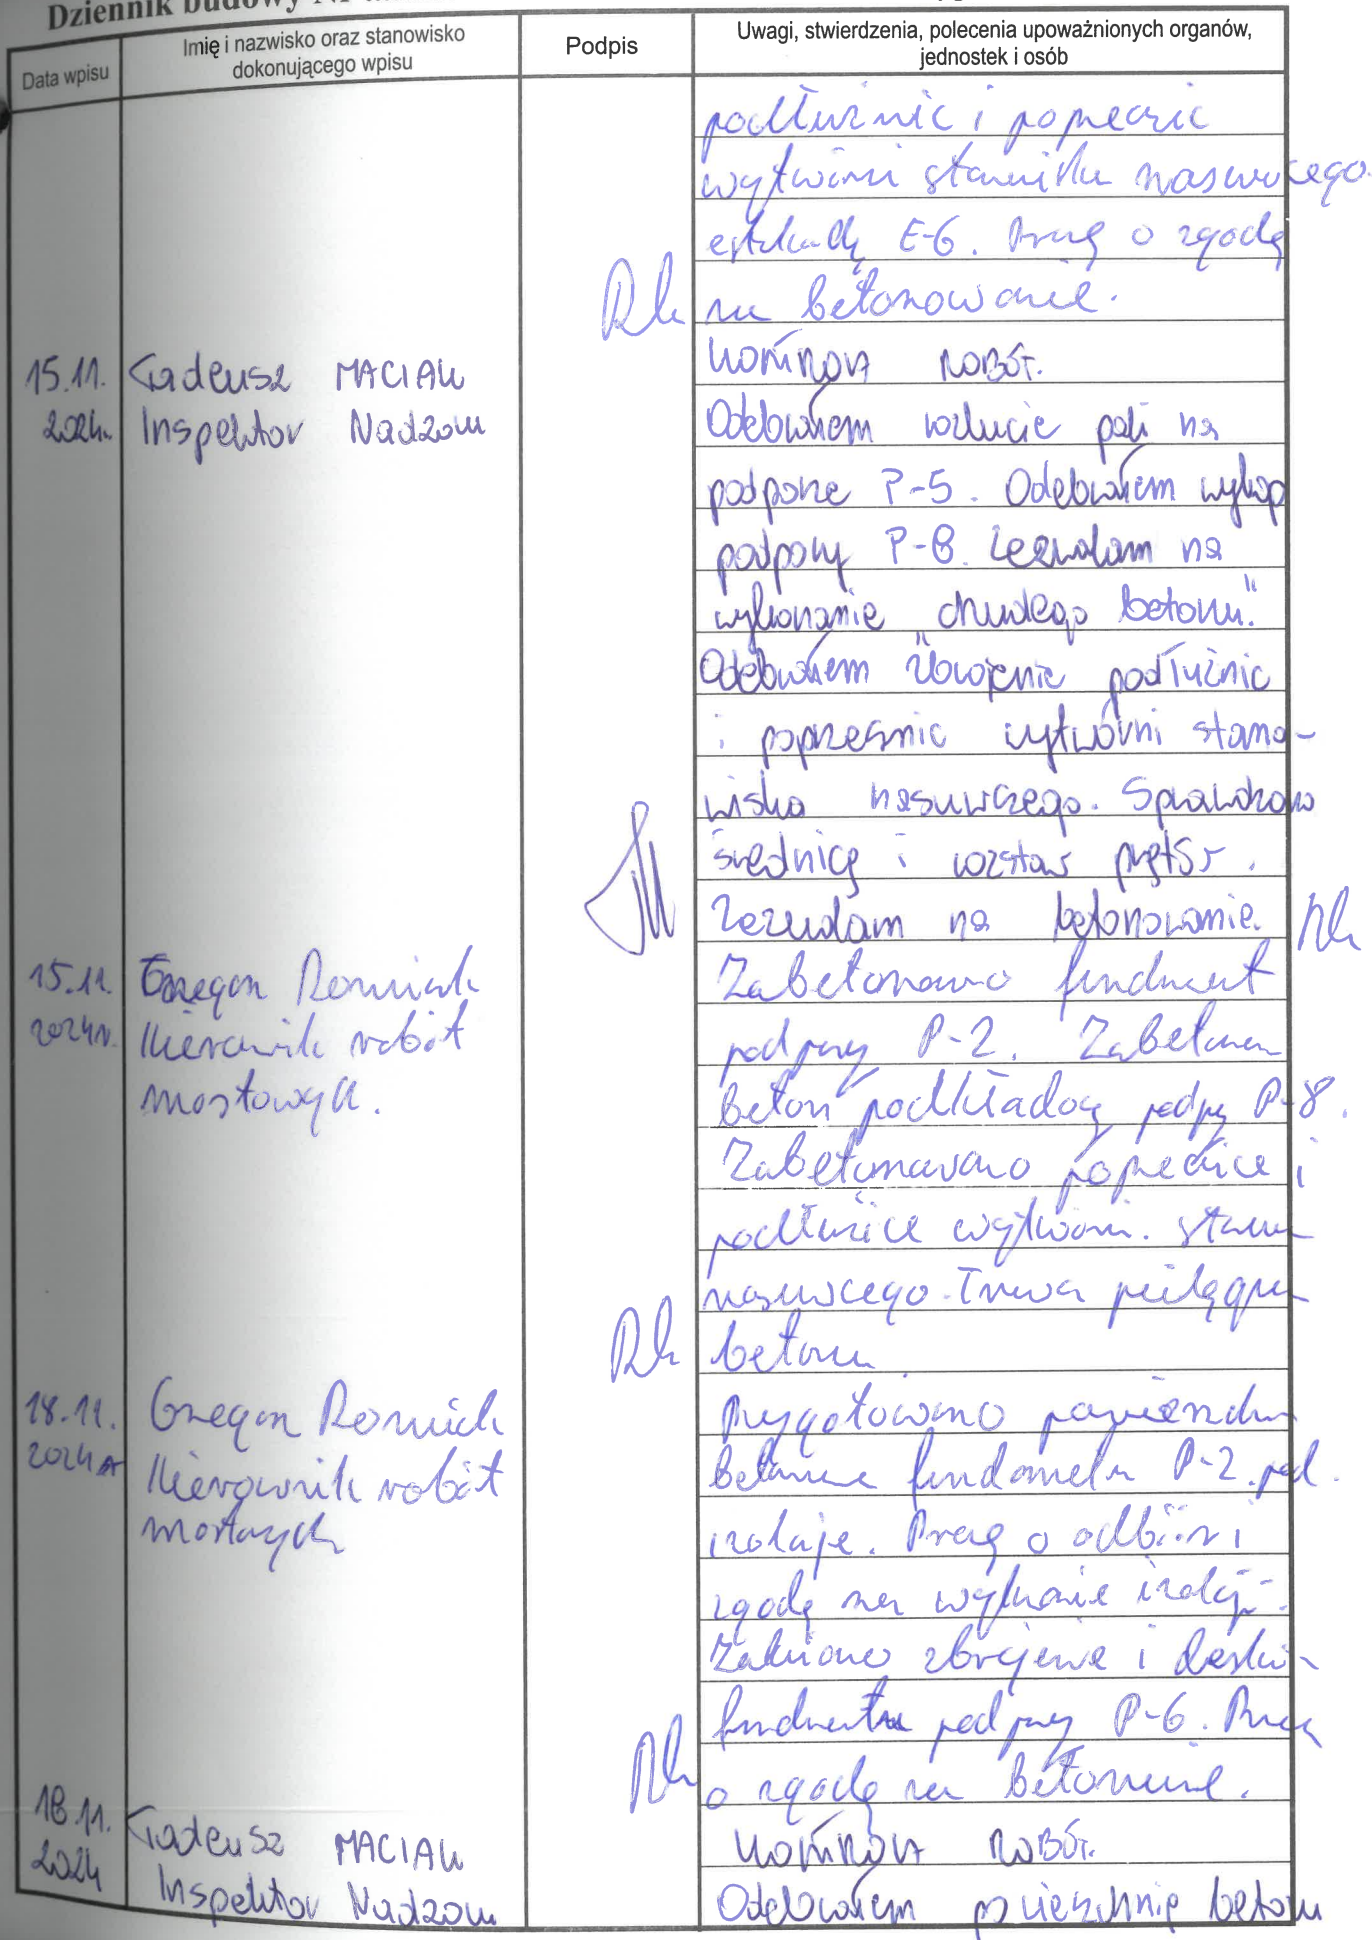 Dziennik budowy Nr
Data wpisu
Imię i nazwisko oraz stanowisko
dokonującego wpisu
Podpis
Uwagi, stwierdzenia, polecenia upoważnionych organów,
jednostek i osób
podłużnic i poprzecznic
wytwórni stanowiska nasuwczego
estakady E-6. Proszę o zgodę
na betonowanie.
15.11.
2024r.
Tadeusz MACIAK
Inspektor Nadzoru
KONTROLA ROBÓT.
Odebrałem rozkucie pali na
podporze P-5. Odebrałem wykop
podpory P-8. Zezwalam na
wykonanie „chudego betonu".
Odebrałem zbrojenie podłużnic
i poprzecznic wytwórni stano-
wiska nasuwczego. Sprawdzono
średnicę i rozstaw prętów.
Zezwalam na betonowanie.
15.11.
2024r.
Grzegorz
Kierownik robót
mostowych.
Zabetonowano fundament
podpory P-2. Zabetonowano
beton podkładowy podpory P-8.
Zabetonowano poprzecznice i
podłużnice wytwórni stanow.
nasuwczego. Trwa pielęgnacja
betonu.
18.11.
2024r
Grzegorz
Kierownik robót
mostowych
Przygotowano powierzchnię
betonu fundamentu P-2 pod
izolację. Proszę o odbiór i
zgodę na wykonanie izolacji.
zbrojenie i deskow.
fundamentu podpory P-6. Proszę
o zgodę na betonowanie.
18.11.
2024
Tadeusz MACIAK
Inspektor Nadzoru
KONTROLA ROBÓT.
Odebrałem powierzchnię betonu